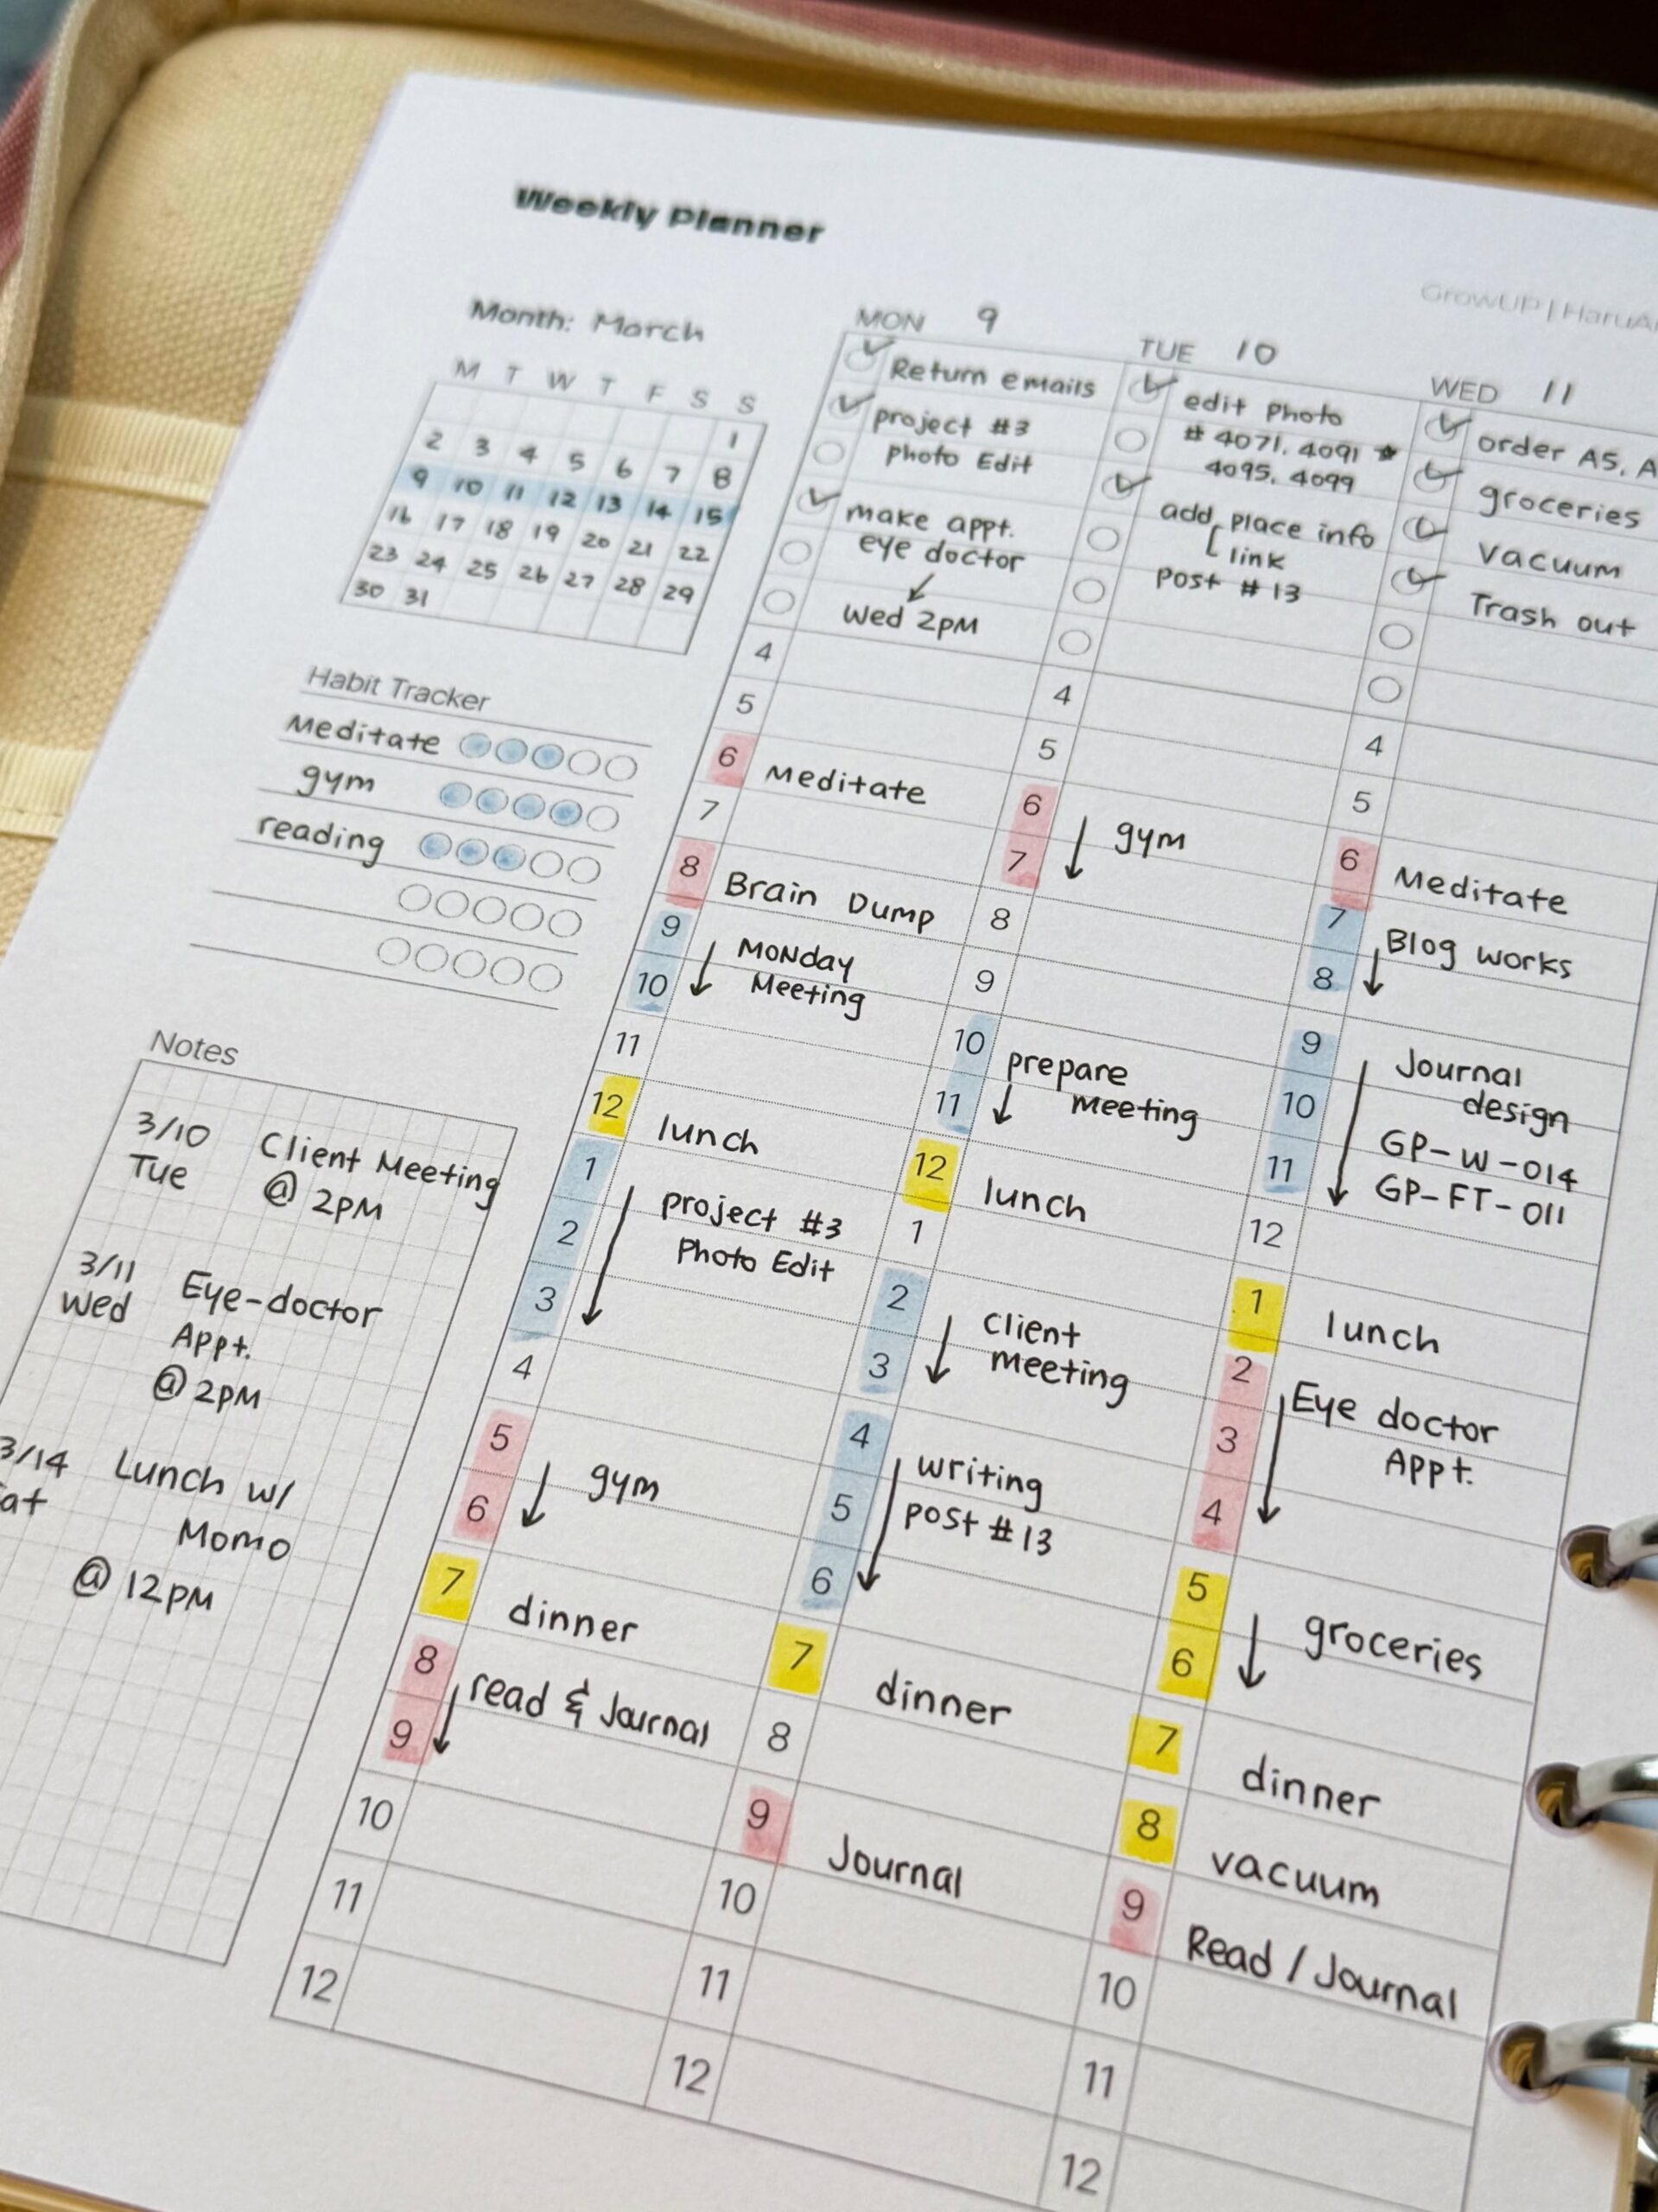 Weekly Planner
GrowUP | HaruAr
Month: March
M T W T F S S
1
2 3 4 5 6 7 8
9 10 11 12 13 14 15
16 17 18 19 20 21 22
23 24 25 26 27 28 29
30 31
Habit Tracker
Meditate
gym
reading
Notes
3/10 Client Meeting
Tue @ 2PM
3/11 Eye-doctor
Wed Appt.
@ 2PM
3/14 Lunch w/
at Momo
@ 12PM
MON 9
Return emails
project #3
Photo Edit
make appt.
eye doctor
Wed 2PM
4
5
6 Meditate
7
8 Brain Dump
9 MONday
10 Meeting
11
12 lunch
1 project #3
2 Photo Edit
3
4
5 gym
6
7 dinner
8 read & Journal
9
10
11
12
TUE 10
edit Photo
# 4071, 4091
4095, 4099
add place info
link
Post #13
4
5
6 gym
7
8
9
10 prepare
11 Meeting
12 lunch
1
2 Client
3 meeting
4 writing
5 post #13
6
7 dinner
8
9 Journal
10
11
12
WED 11
order A5, A
groceries
vacuum
Trash out
4
5
6 Meditate
7 Blog works
8
9 Journal
10 design
11 GP-W-014
GP-FT-011
12
1 lunch
2 Eye doctor
3 Appt.
4
5 groceries
6
7 dinner
8 vacuum
9 Read / Journal
10
11
12